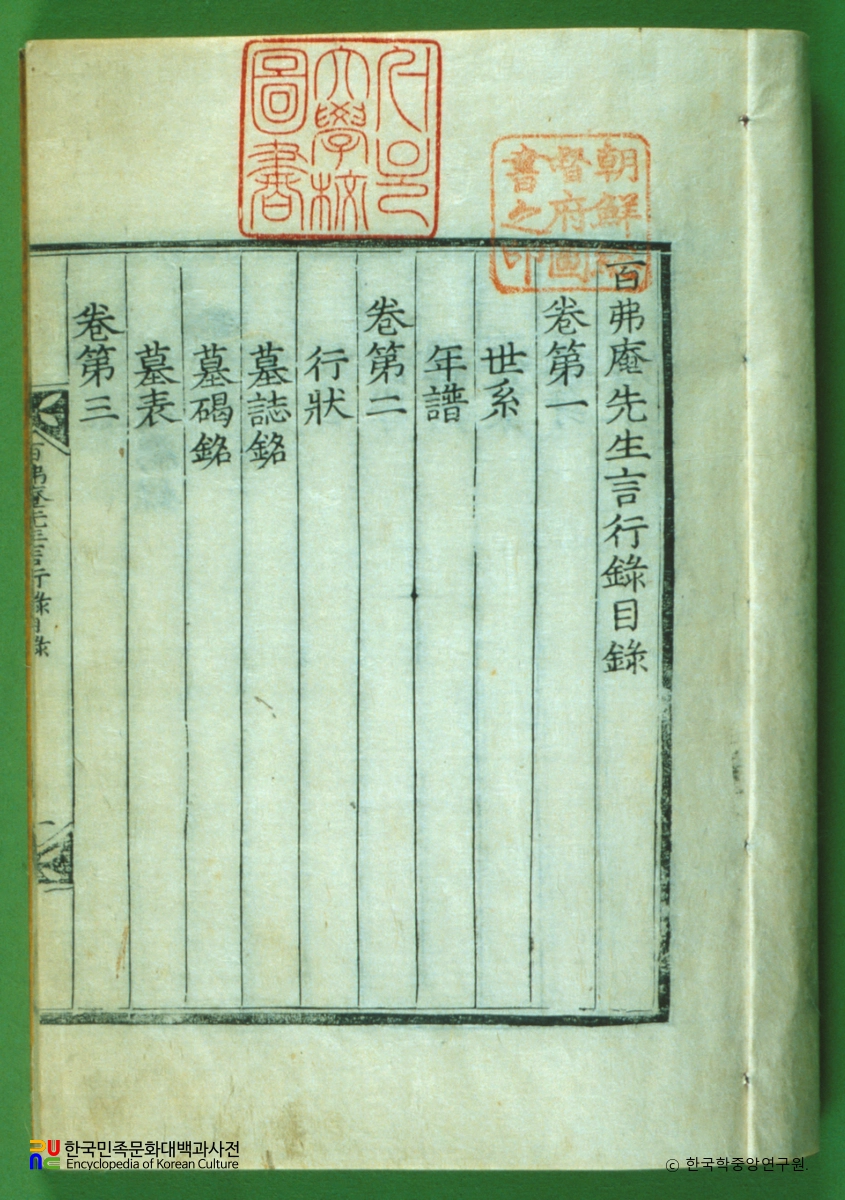 百弗庵先生言行錄目錄
卷第一
世系
年譜
卷第二
行狀
墓誌銘
墓碣銘
墓表
卷第三
百弗庵先生言行錄目錄
朝鮮總
督府圖
書之印
서울
大學校
圖書
한국민족문화대백과사전
Encyclopedia of Korean Culture
© 한국학중앙연구원.